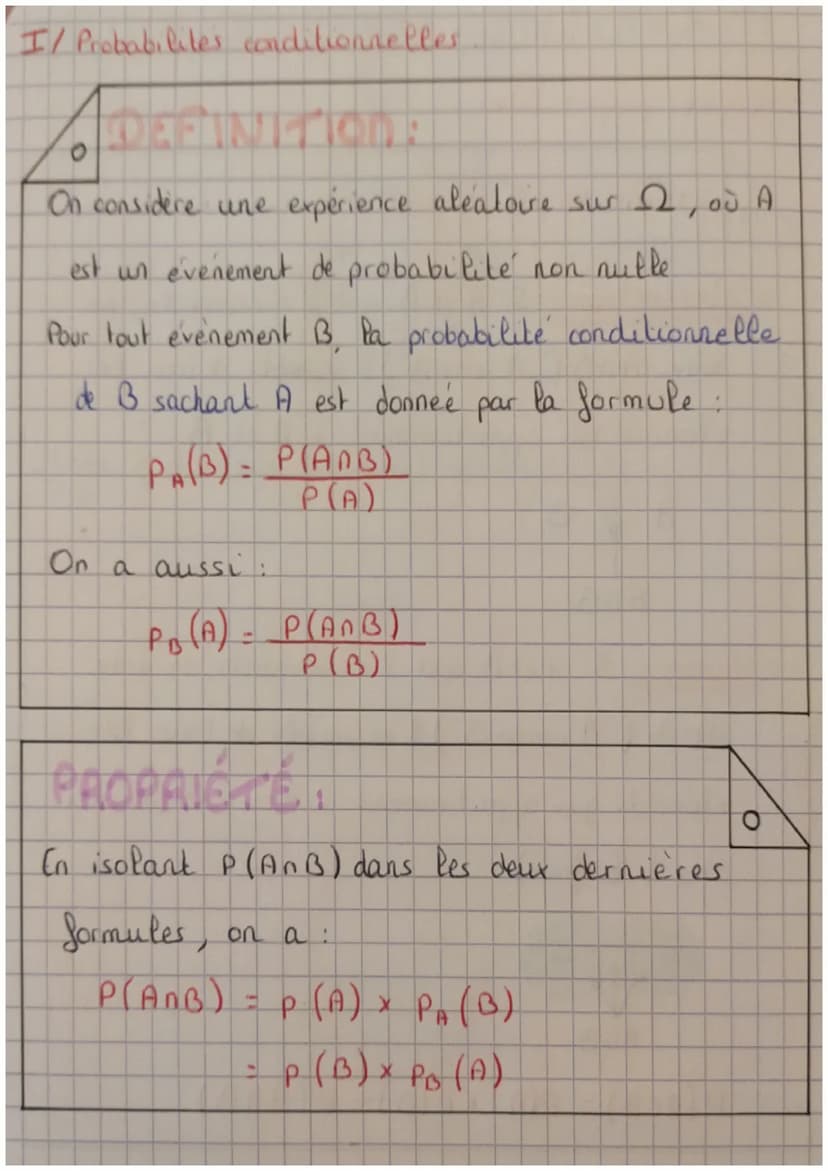 I/ Probabilités conditionnelles
DEFINITION :
On considère une expérience aléatoire sur Ω, où A
est un évènement de probabilité non nulle
Pour tout évènement B, la probabilité conditionnelle
de B sachant A est donneé par la formule :
P_A(B) = P(A∩B) / P(A)
On a aussi :
P_B(A) = P(A∩B) / P(B)
PROPRIÉTÉ :
En isolant P(A∩B) dans les deux dernières
formules, on a :
P(A∩B) = p(A) × P_A(B)
= p(B) × P_B(A)